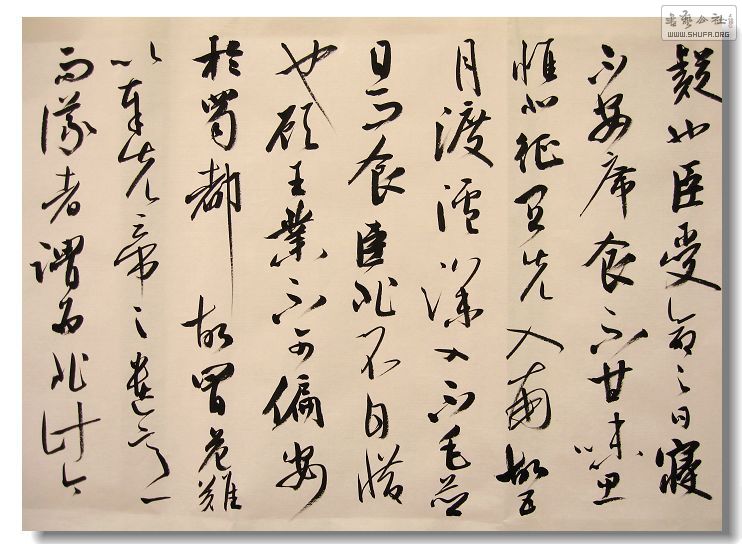 疑也臣受命之日寢
不安席食不甘味思
惟北征宜先入南故五
月渡瀘深入不毛並
日而食臣非不自惜
也顧王業不可偏安
於蜀都 故冒危難
以奉先帝之遺意
而議者謂為非計今
书艺公社
WWW.SHUFA.ORG